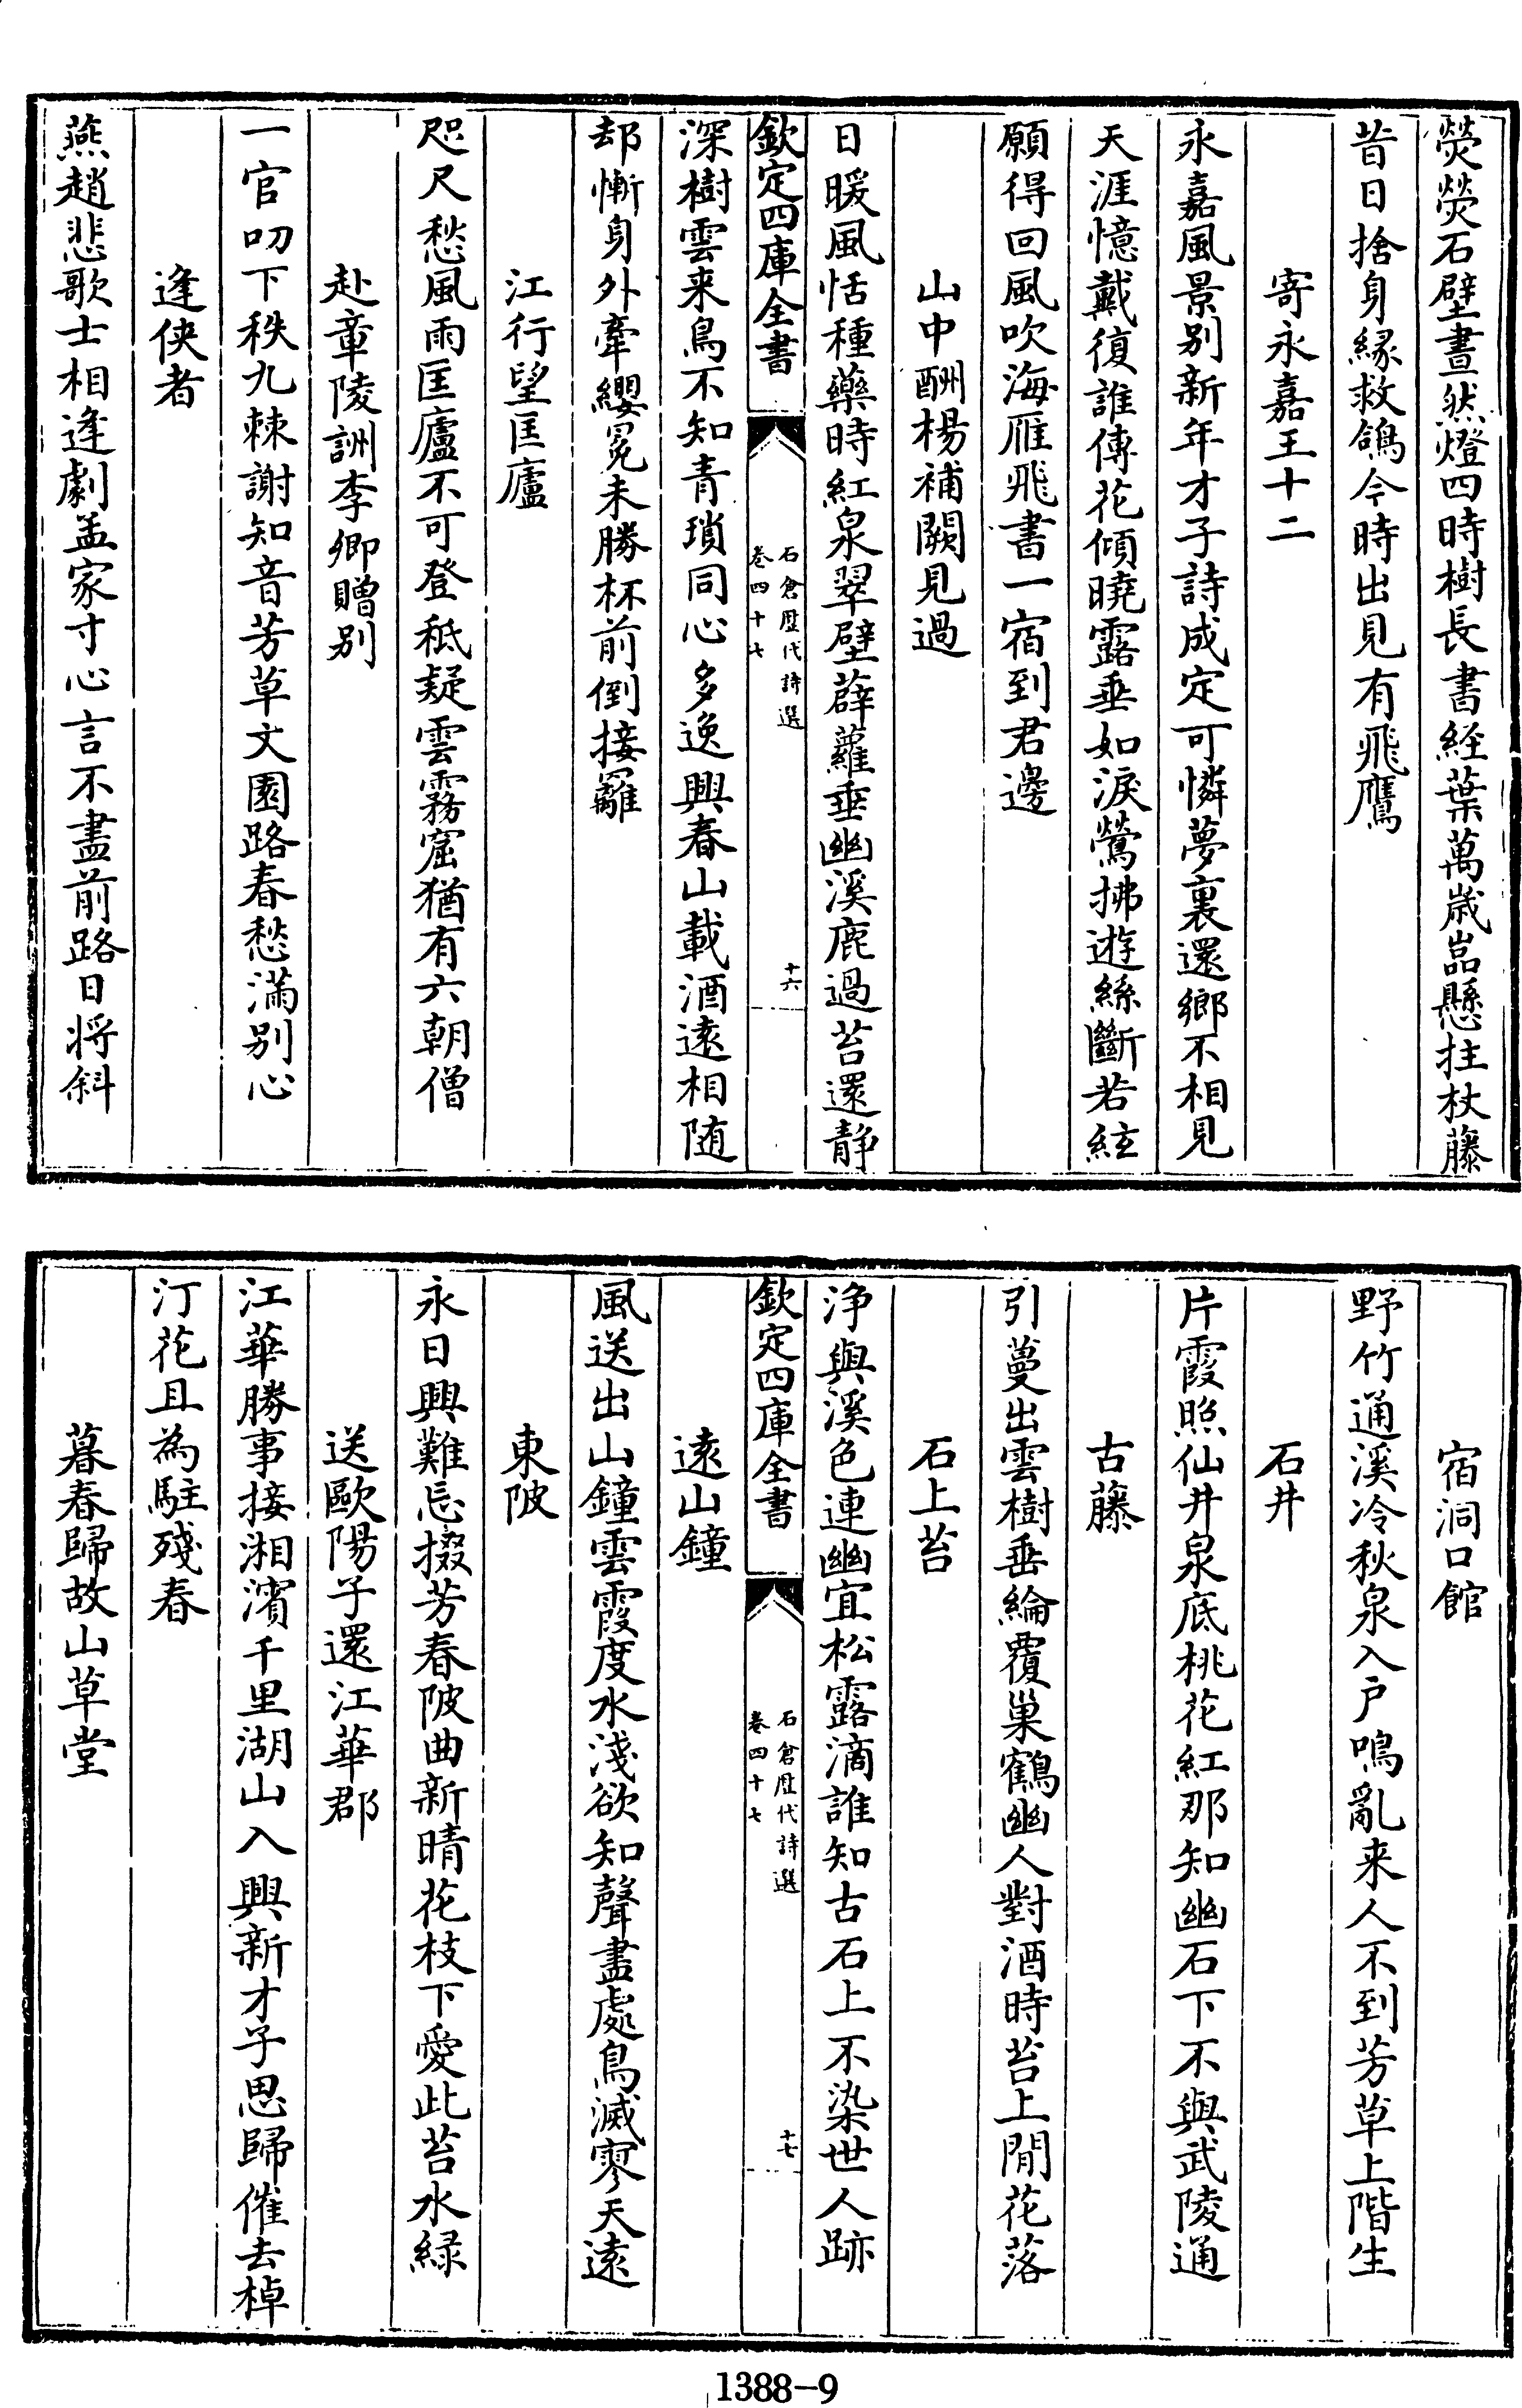 熒熒石壁晝然燈四時樹長書經葉萬歲嵓懸拄杖藤
昔日捨身緣救鴿今時出見有飛鷹
寄永嘉王十二
永嘉風景别新年才子詩成定可憐夢裏還鄉不相見
天涯憶戴復誰傳花傾曉露垂如淚鶯拂遊絲斷若絃
願得回風吹海雁飛書一宿到君邊
山中酬楊補闕見過
日暖風恬種藥時紅泉翠壁薜蘿垂幽溪鹿過苔還静
欽定四庫全書
石倉歷代詩選
卷四十七
十六
深樹雲来鳥不知青瑣同心多逸興春山載酒遠相随
却慚身外牽纓冕未勝杯前倒接䍦
江行望匡廬
咫尺愁風雨匡廬不可登秪疑雲霧窟猶有六朝僧
赴章陵詶李卿贈别
一官叨下秩九棘謝知音芳草文園路春愁滿别心
逢俠者
燕趙悲歌士相逢劇孟家寸心言不盡前路日将斜
宿洞口館
野竹通溪冷秋泉入户鳴亂来人不到芳草上階生
石井
片霞照仙井泉底桃花紅那知幽石下不與武陵通
古藤
引蔓出雲樹垂綸覆巢鶴幽人對酒時苔上閒花落
石上苔
浄與溪色連幽宜松露滴誰知古石上不染世人跡
欽定四庫全書
石倉歷代詩選
卷四十七
十七
遠山鐘
風送出山鐘雲霞度水淺欲知聲盡處鳥滅寥天遠
東陂
永日興難忘掇芳春陂曲新晴花枝下愛此苔水緑
送歐陽子還江華郡
江華勝事接湘濱千里湖山入興新才子思歸催去棹
汀花且為駐殘春
暮春歸故山草堂
1388-9